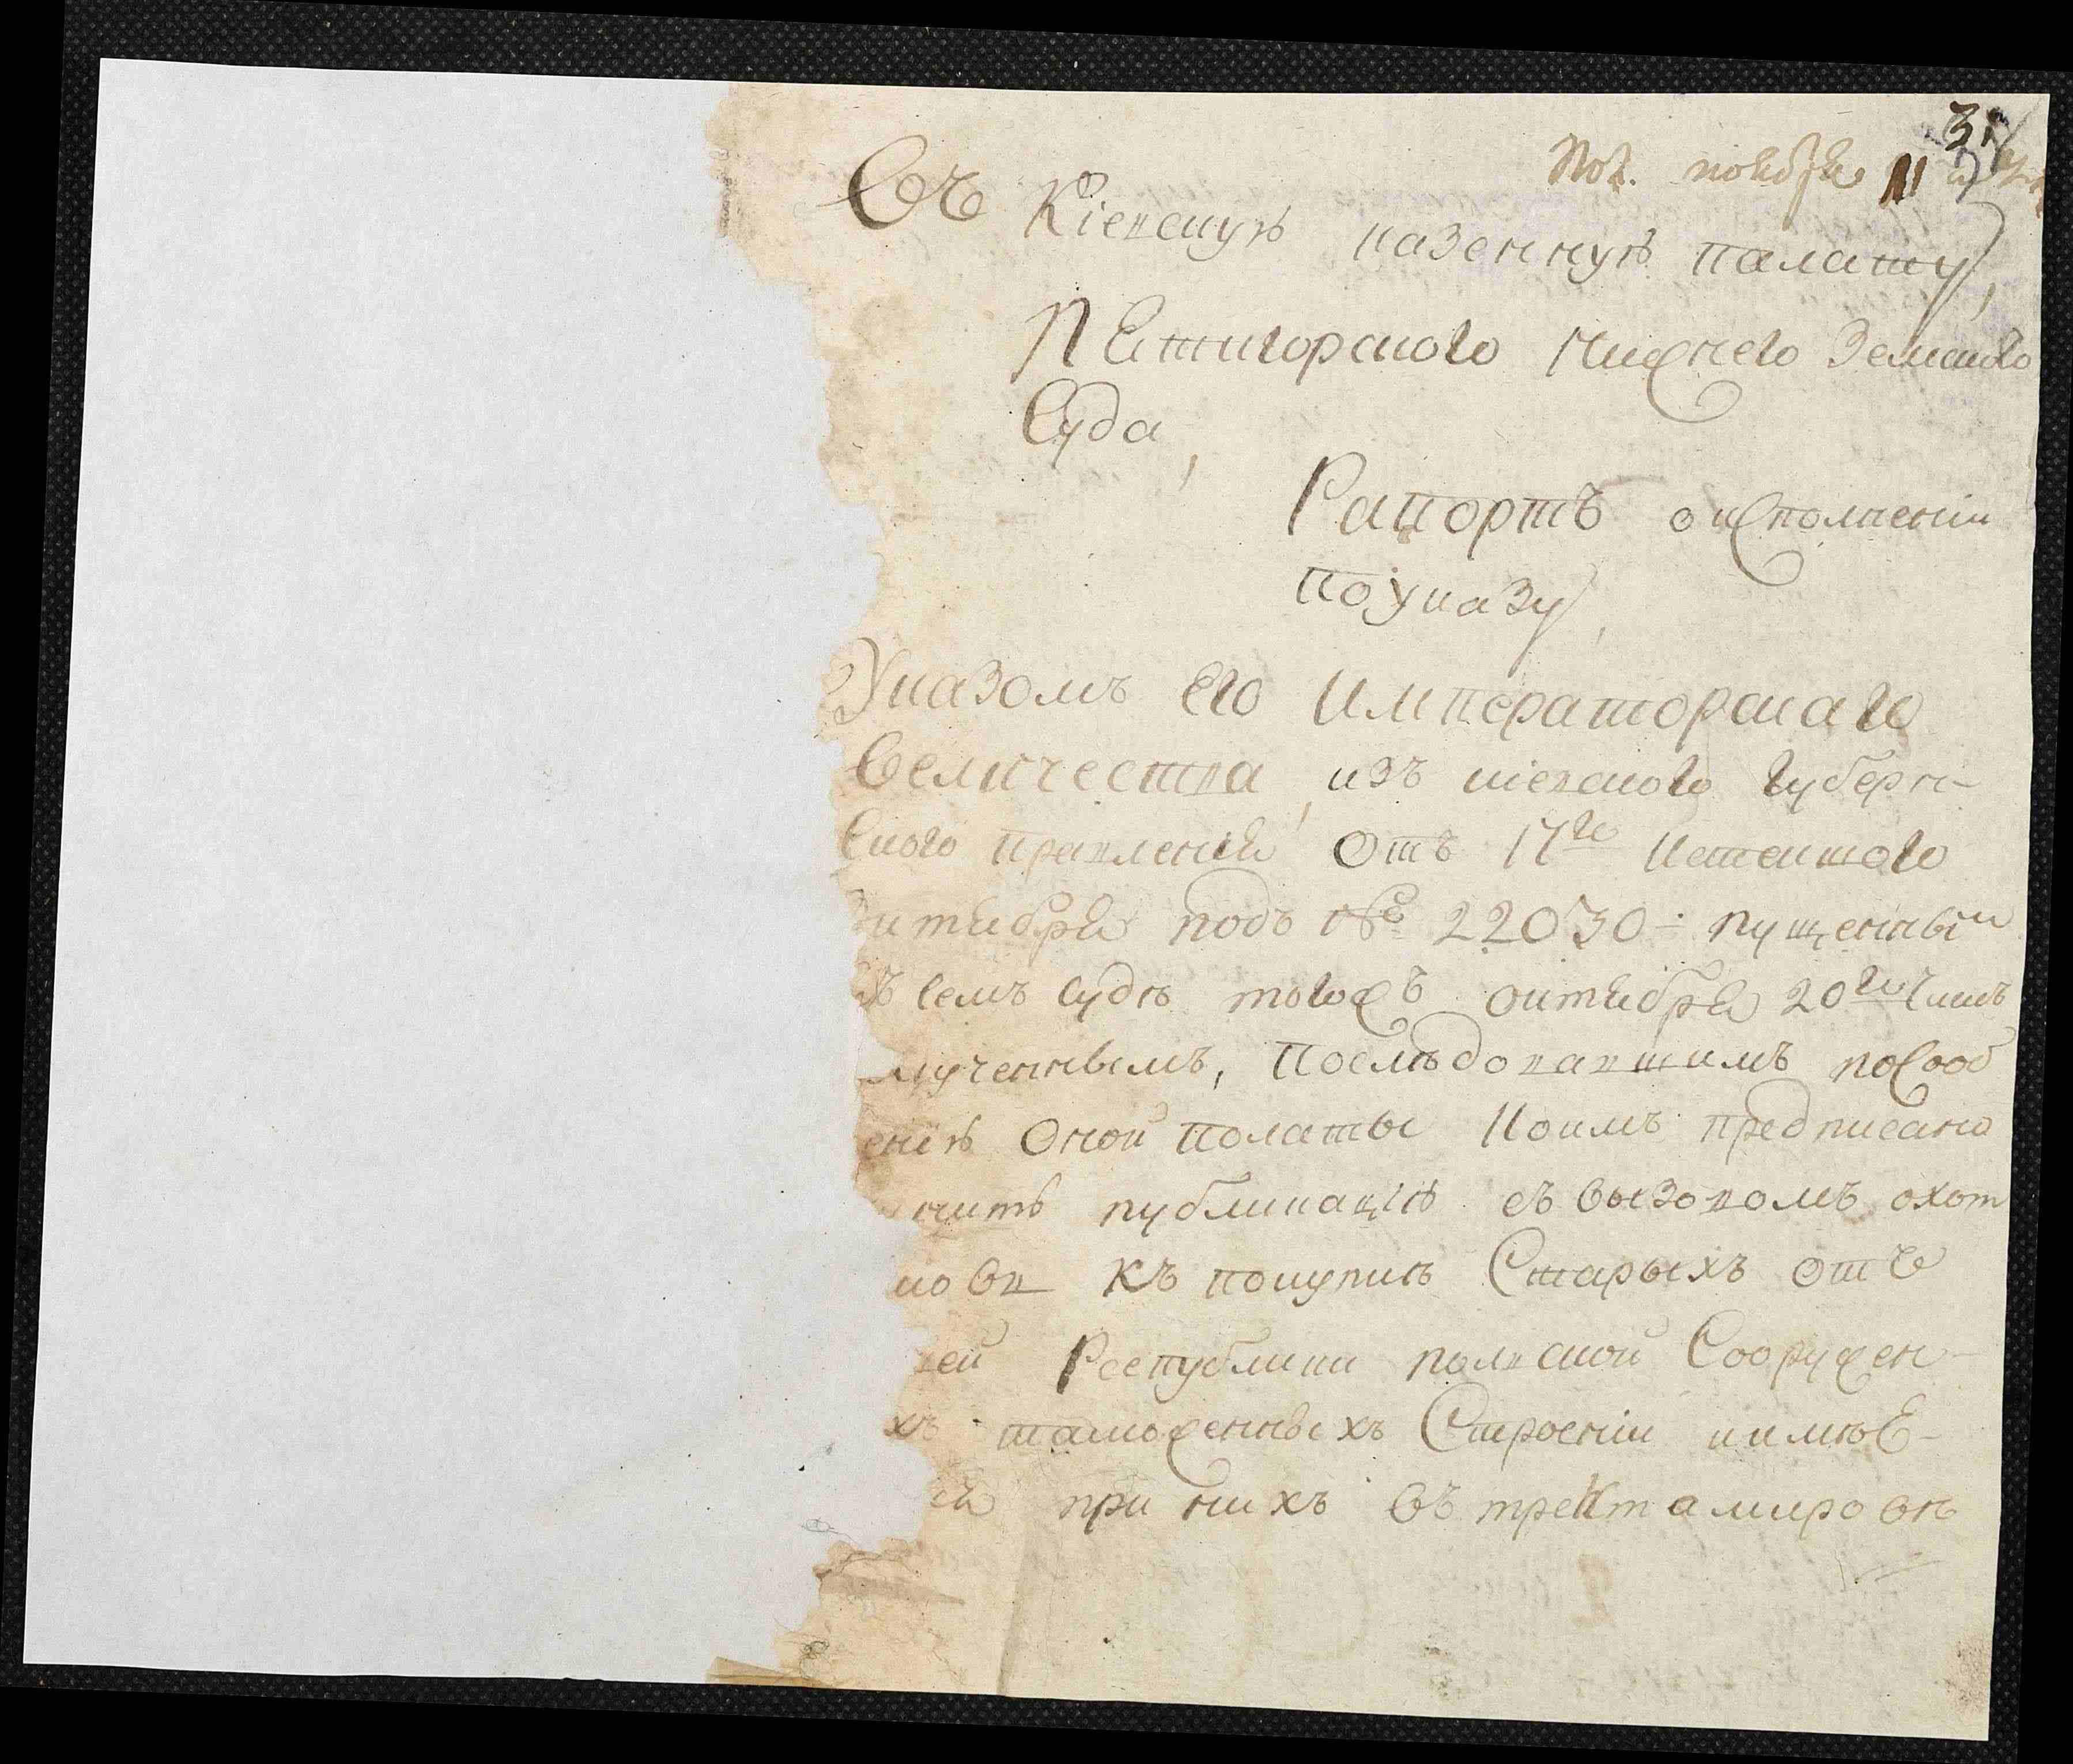 31
Пол. ноября 11
Въ Кіевскую казенную палату,
Пятигорского нижнего Земского
Суда,
Рапортъ о исполнении
по указу,
Указомъ Его Императорскаго
Величества, изъ кіевского губерн-
ского правленія отъ 17го истекшого
октября подъ № 22030 - пущенным
въ семъ суде тогожъ октября 20го числ
лученнымъ, последовавшимъ по сооб
енію оной полаты коимъ предписано
нить публикацію съ вызовомъ охот
ков къ покупке Старыхъ отъ
ей Республики полской Сооружен-
хъ таможенныхъ Строении и имѣе-
ся при нихъ въ тректамирове